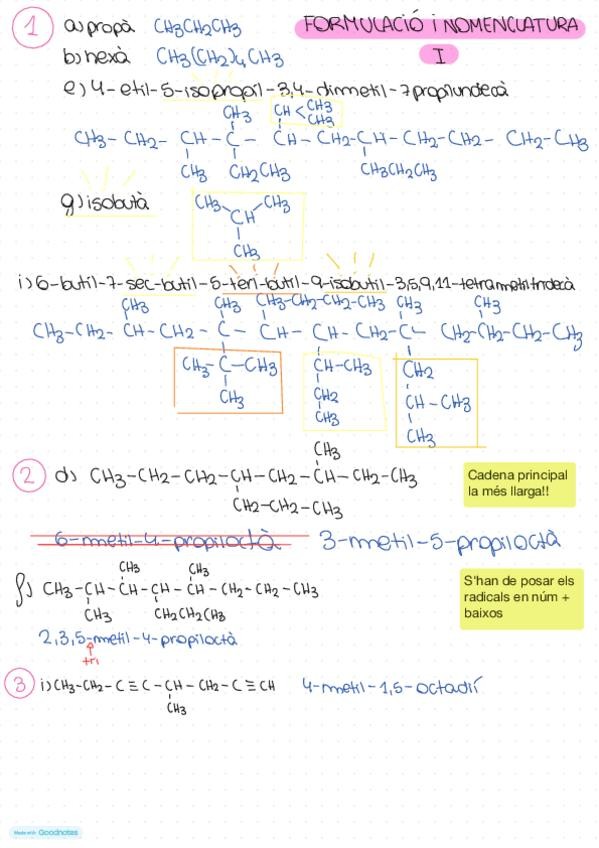 FORMULACIÓ i NOMENCLATURA
I
1 a) propà CH3CH2CH3
b) hexà CH3(CH2)4CH3
e) 4-etil-5-isopropil-3,4-dimetil-7propilundecà
CH3 CH < CH3
CH3
CH3-CH2-CH-C-CH-CH2-CH-CH2-CH2-CH2-CH3
CH3 CH2CH3 CH3CH2CH3
g) isobutà
CH3 CH3
CH
CH3
i) 6-butil-7-sec-butil-5-tert-butil-9-isobutil-3,5,9,11-tetrametiltridecà
CH3 CH3 CH3-CH2-CH2-CH3 CH3 CH3
CH3-CH2-CH-CH2-C-CH-CH-CH2-C- CH2-CH2-CH2-CH3
CH3-C-CH3 CH-CH3 CH2
CH3 CH2 CH-CH3
CH3 CH3
CH3
2 d) CH3-CH2-CH2-CH-CH2-CH-CH2-CH3
CH2-CH2-CH3
Cadena principal
la més llarga!!
6-metil-4-propiloctà 3-metil-5-propiloctà
CH3 CH3
f) CH3-CH-CH-CH-CH-CH2-CH2-CH3
CH3 CH2CH2CH3
S'han de posar els
radicals en núm +
baixos
2,3,5-metil-4-propiloctà
tri
3 i) CH3-CH2-C≡C-CH-CH2-C≡CH 4-metil-1,5-octadií
CH3
Made with Goodnotes